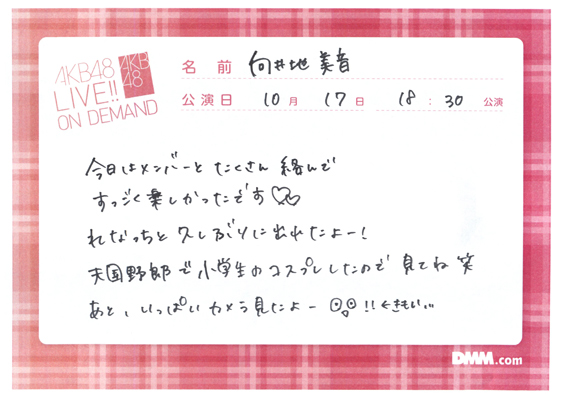 AKB48
LIVE!!
ON DEMAND
AKB
48
名前 向井地 美音
公演日 10月 17日 18:30 公演
今日はメンバーと たくさん 絡んで
すっごく楽しかったです♡♡
れなっちと 久しぶりに出れたよー!
天国野郎で小学生のコスプレしたので 見てね 笑
あと、いっぱい カメラ見たよー !!←きもい...
DMM.com